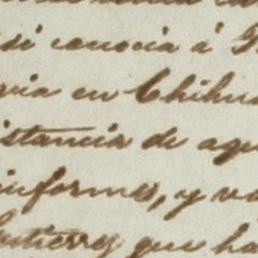 si conocia á
en Chihu
istancia de agu
informes, y v
Gutierrez que ha